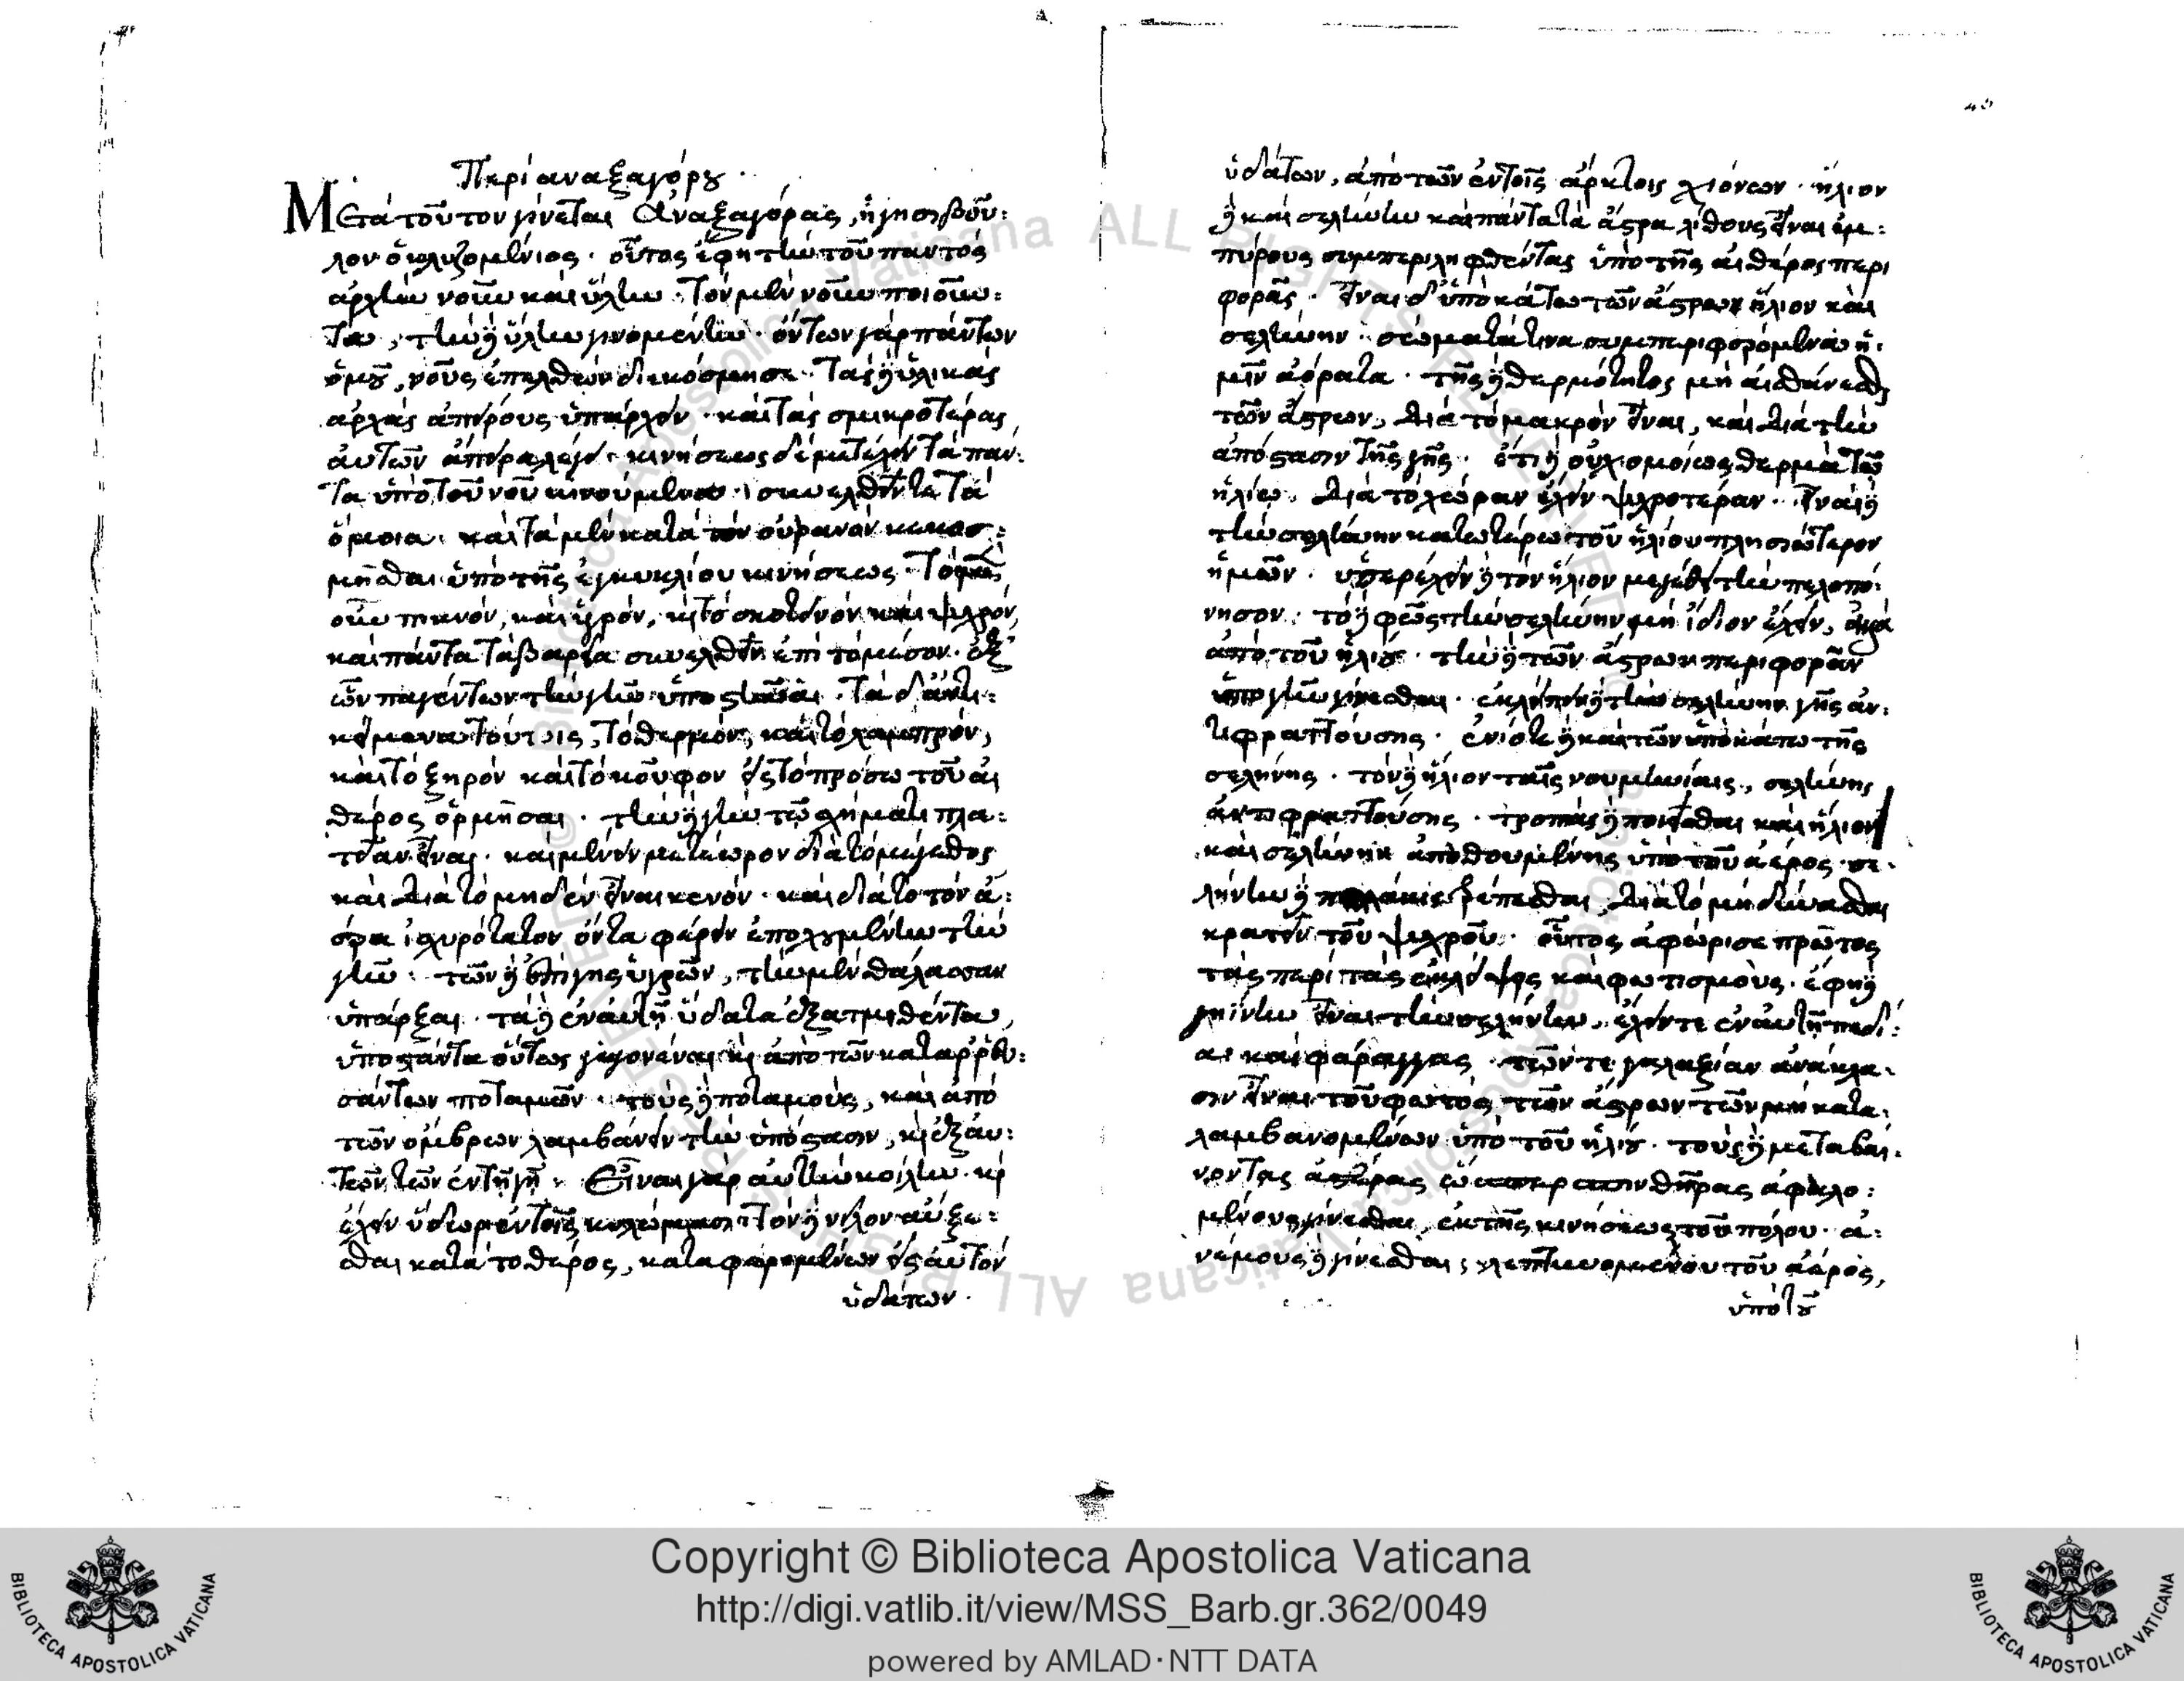 Περὶ αναξαγόρου.
Μετὰ τοῦτον γίνεται Ἀναξαγόρας, ἡγησιβοῦ:
λου ὁ κλαζομένιος. οὗτος ἔφη τὴν τοῦ παντὸς
ἀρχὴν νοῦν καὶ ὕλην. τὸν μὲν νοῦν ποιοῦν:
τα, τὴν δὲ ὕλην γινομένην. ὄντων γὰρ πάντων
ὁμοῦ, νοῦς ἐπελθὼν διεκόσμησε. τὰς δὲ ὑλικὰς
ἀρχὰς ἀπείρους ὑπάρχειν. καὶ τὰς σμικροτέρας
αὐτῶν ἄπειρα λέγει. κινήσεως δὲ μετέχειν τὰ πάν:
τα ὑπὸ τοῦ νοῦ κινούμενα. συνελθεῖν τε τὰ
ὅμοια. καὶ τὰ μὲν κατὰ τὸν οὐρανὸν κεκοσ:
μῆσθαι ὑπὸ τῆς ἐγκυκλίου κινήσεως. τὸ μὲν
οὖν πυκνόν, καὶ ὑγρόν, καὶ τὸ σκοτεινὸν καὶ ψυχρόν,
καὶ πάντα τὰ βαρέα συνελθεῖν ἐπὶ τὸ μέσον. ἐξ
ὧν παγέντων τὴν γῆν ὑποστῆναι. τὰ δ' ἀντι:
κείμενα τούτοις, τὸ θερμὸν, καὶ τὸ λαμπρόν,
καὶ τὸ ξηρὸν καὶ τὸ κοῦφον εἰς τὸ πρόσω τοῦ αἰ
θέρος ὁρμῆσαι. τὴν δὲ γῆν τῷ σχήματι πλα:
τεῖαν εἶναι. καὶ μένειν μετέωρον διὰ τὸ μέγεθος
καὶ διὰ τὸ μηδὲν εἶναι κενόν. καὶ διὰ τὸ τὸν ἀ:
έρα ἰσχυρότατον ὄντα φέρειν ἐποχουμένην τὴν
γῆν. τῶν δὲ ἐπὶ γῆς ὑγρῶν, τὴν μὲν θάλασσαν
ὑπάρξαι. τὰ δὲ ἐν αὐτῇ ὕδατα ἐξατμισθέντα,
ὑποστάντα οὕτως γεγονέναι καὶ ἀπὸ τῶν καταρρευ:
σάντων ποταμῶν. τοὺς δὲ ποταμοὺς, καὶ ἀπὸ
τῶν ὄμβρων λαμβάνειν τὴν ὑπόστασιν, καὶ ἐξ αὐ:
τῶν τῶν ἐν τῇ γῇ. Εἶναι γὰρ αὐτὴν κοίλην. καὶ
ἔχειν ὕδωρ ἐν τοῖς κοιλώμασι. τὸν δὲ νεῖλον αὔξε:
σθαι κατὰ τὸ θέρος, καταφερομένων εἰς αὐτὸν
ὑδάτων.
ὑδάτων, ἀπὸ τῶν ἐν τοῖς ἄρκτοις χιόνων. ἥλιον
δὲ καὶ σελήνην καὶ πάντα τὰ ἄστρα λίθους εἶναι ἐμ:
πύρους συμπεριληφθέντας ὑπὸ τῆς αἰθέρος περι
φορᾶς. εἶναι δ' ὑποκάτω τῶν ἄστρων ἥλιον καὶ
σελήνην. σώματά τινα συμπεριφερόμενα ἡ:
μῖν ἀόρατα. τῆς δὲ θερμότητος μὴ αἰσθάνεσθαι
τῶν ἄστρων, διὰ τὸ μακρὸν εἶναι, καὶ διὰ τὴν
ἀπόστασιν τῆς γῆς. ἔτι δὲ οὐχ ὁμοίως θερμὰ τῷ
ἡλίῳ. διὰ τὸ χώραν ἔχειν ψυχροτέραν. εἶναι δὲ
τὴν σελήνην κατωτέρω τοῦ ἡλίου πλησιώτερον
ἡμῶν. ὑπερέχειν δὲ τὸν ἥλιον μεγέθει τὴν πελοπό:
νησον. τὸ δὲ φῶς τὴν σελήνην μὴ ἴδιον ἔχειν, ἀλλὰ
ἀπὸ τοῦ ἡλίου. τὴν δὲ τῶν ἄστρων περιφορὰν
ὑπὸ γῆν γίνεσθαι. ἐκλείπειν δὲ τὴν σελήνην γῆς ἀν:
τιφραττούσης. ἐνίοτε δὲ καὶ τῶν ὑποκάτω τῆς
σελήνης. τὸν δὲ ἥλιον ταῖς νουμηνίαις, σελήνης
ἀντιφραττούσης. τροπὰς δὲ ποιεῖσθαι καὶ ἥλιον
καὶ σελήνην ἀποθουμένης ὑπὸ τοῦ ἀέρος. σε.
λήνην δὲ πολλάκις τρέπεσθαι, διὰ τὸ μὴ δύνασθαι
κρατεῖν τοῦ ψυχροῦ. οὗτος ἀφώρισε πρῶτος
τὰς περὶ τὰς ἐκλείψεις καὶ φωτισμούς. ἔφη δὲ
γηΐνην εἶναι τὴν σελήνην. ἔχειν τε ἐν αὐτῇ πεδί:
α καὶ φάραγγας. τῶν τε γαλαξίαν ἀνάκλα.
σιν εἶναι τοῦ φωτὸς τῶν ἄστρων τῶν μὴ κατα:
λαμβανομένων ὑπὸ τοῦ ἡλίου. τοὺς δὲ μεταβαί:
νοντας ἀστέρας ἀφαλο:
μένους γίνεσθαι, ἐκ τῆς κινήσεως τοῦ πόλου. ἀ:
νέμους δὲ γίνεσθαι, λεπτυνομένου τοῦ ἀέρος,
ὑπὸ τοῦ
Copyright © Biblioteca Apostolica Vaticana
http://digi.vatlib.it/view/MSS_Barb.gr.362/0049
powered by AMLAD·NTT DATA
BIBLIOTECA APOSTOLICA VATICANA
BIBLIOTECA APOSTOLICA VATICANA